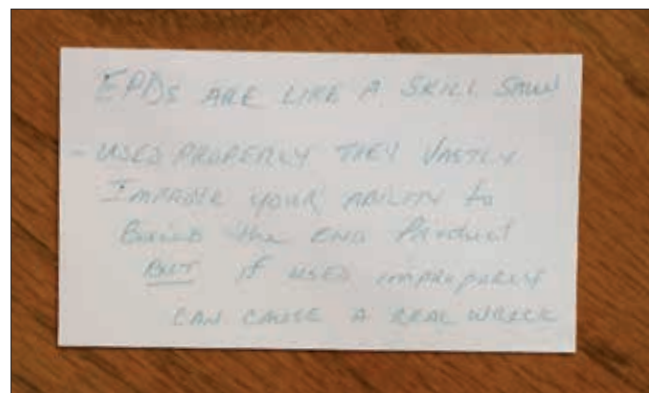 EPDs ARE LIKE A SKILL SAW
- USED PROPERLY THEY VASTLY
IMPROVE YOUR ABILITY to
BUILD the END PRODUCT
BUT if USED IMPROPERLY
CAN CAUSE A REAL WRECK